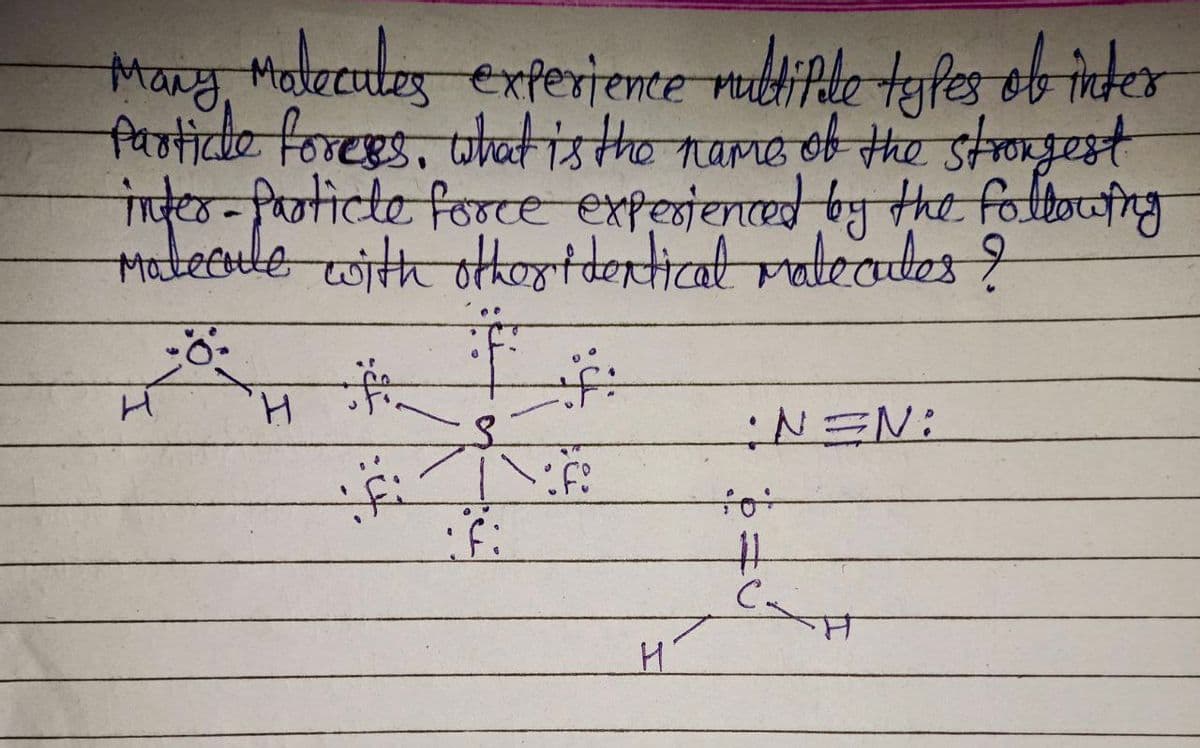 Many Molecules experience multiple types of inter
particle forces. what is the name of the strongest
inter-particle force experienced by the following
Molecule with other identical molecules ?
:F:
:O:
:F: :F:
H H
S :N≡N:
:F: :F:
:O:
:F: ||
C
H
H